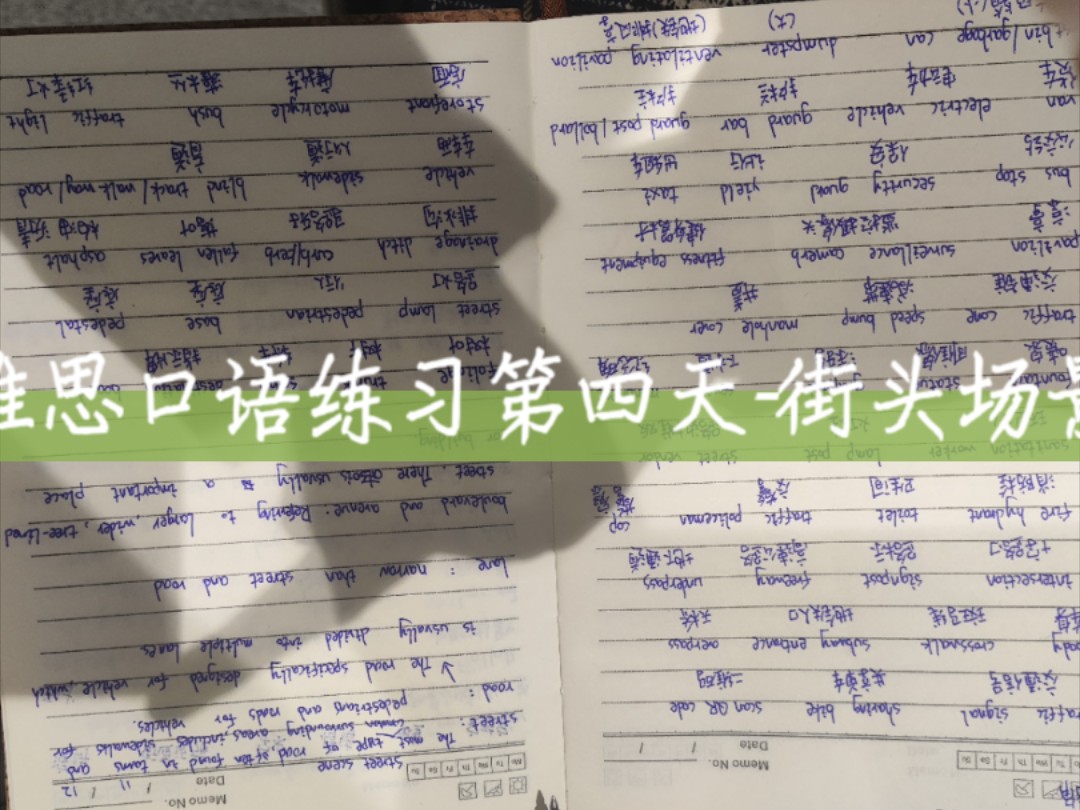 雅思口语练习第四天-街头场景
Memo No.
Date 11 / 12
Mo Tu We Th Fr Sa Su
street scene
street: The most common type of road often found in towns and
surrounding areas, includes sidewalks for
pedestrians and roads for vehicles.
road: ↳ The road specifically designed for vehicle, which
is usually divided into multiple lanes
lane: narrow than street and road
boulevard and avenue. Refering to larger, wider, tree-lined
street. There is usually a important place
or building
street lamp pedestrian base pedestal
路灯 行人 底座 底座
drainage ditch curb/kerb fallen leaves asphalt
排水沟 路缘石
vehicle sidewalk blind track/walkway/road
车辆 人行道 盲道
storefront motorcycle bush traffic light
店面 摩托车 灌木丛 红绿灯
Memo No.
Date / /
Mo Tu We Th Fr Sa Su
traffic signal sharing bike scan QR code
交通信号 共享单车 二维码
body crosswalk subway entrance overpass
斑马线 地铁入口 天桥
intersection signpost freeway underpass
十字路口 路标 高速公路 地下通道
fire hydrant toilet traffic policeman cop
消防栓 卫生间 交警
sanitation worker lamp post street vendor
traffic cone speed bump manhole cover
交通锥 减速带 井盖
pavilion surveillance camera fitness equipment
凉亭 监控摄像头 健身器材
bus stop security guard yield taxi
公交站 保安 让行 出租车
van electric vehicle guard bar guard post/bollard
货车 电动车 护栏 护栏
bin/garbage can dumpster ventilating pavilion